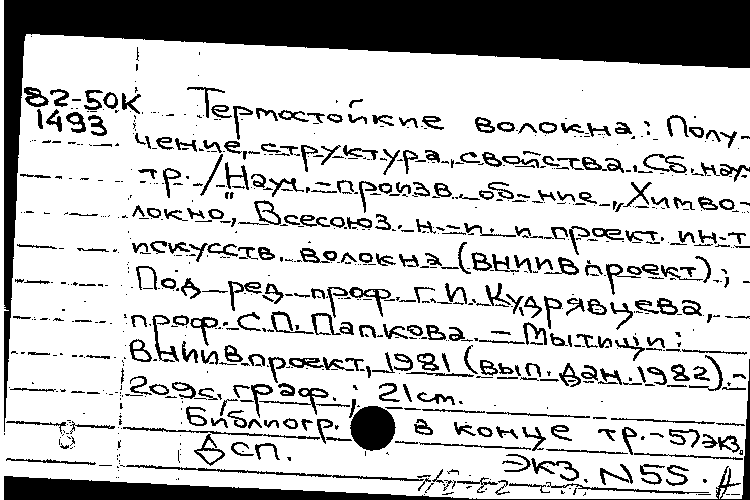 82-50К
1493
Термостойкие волокна: Полу-
чение, структура, свойства. Сб. науч.
тр. / Науч.-произв. об-ние „Химво-
локно", Всесоюз. н.-и. и проект. ин-т
искусств. волокна (ВНИИВпроект);
Под ред. проф. Г.И. Кудрявцева,
проф. С.П. Папкова. - Мытищи:
ВНИИВпроект, 1981 (вып. дан. 1982).-
209с. граф.; 21см.
Библиогр. в конце тр.-57экз.
8
ДСП.
ЭКЗ. N55.